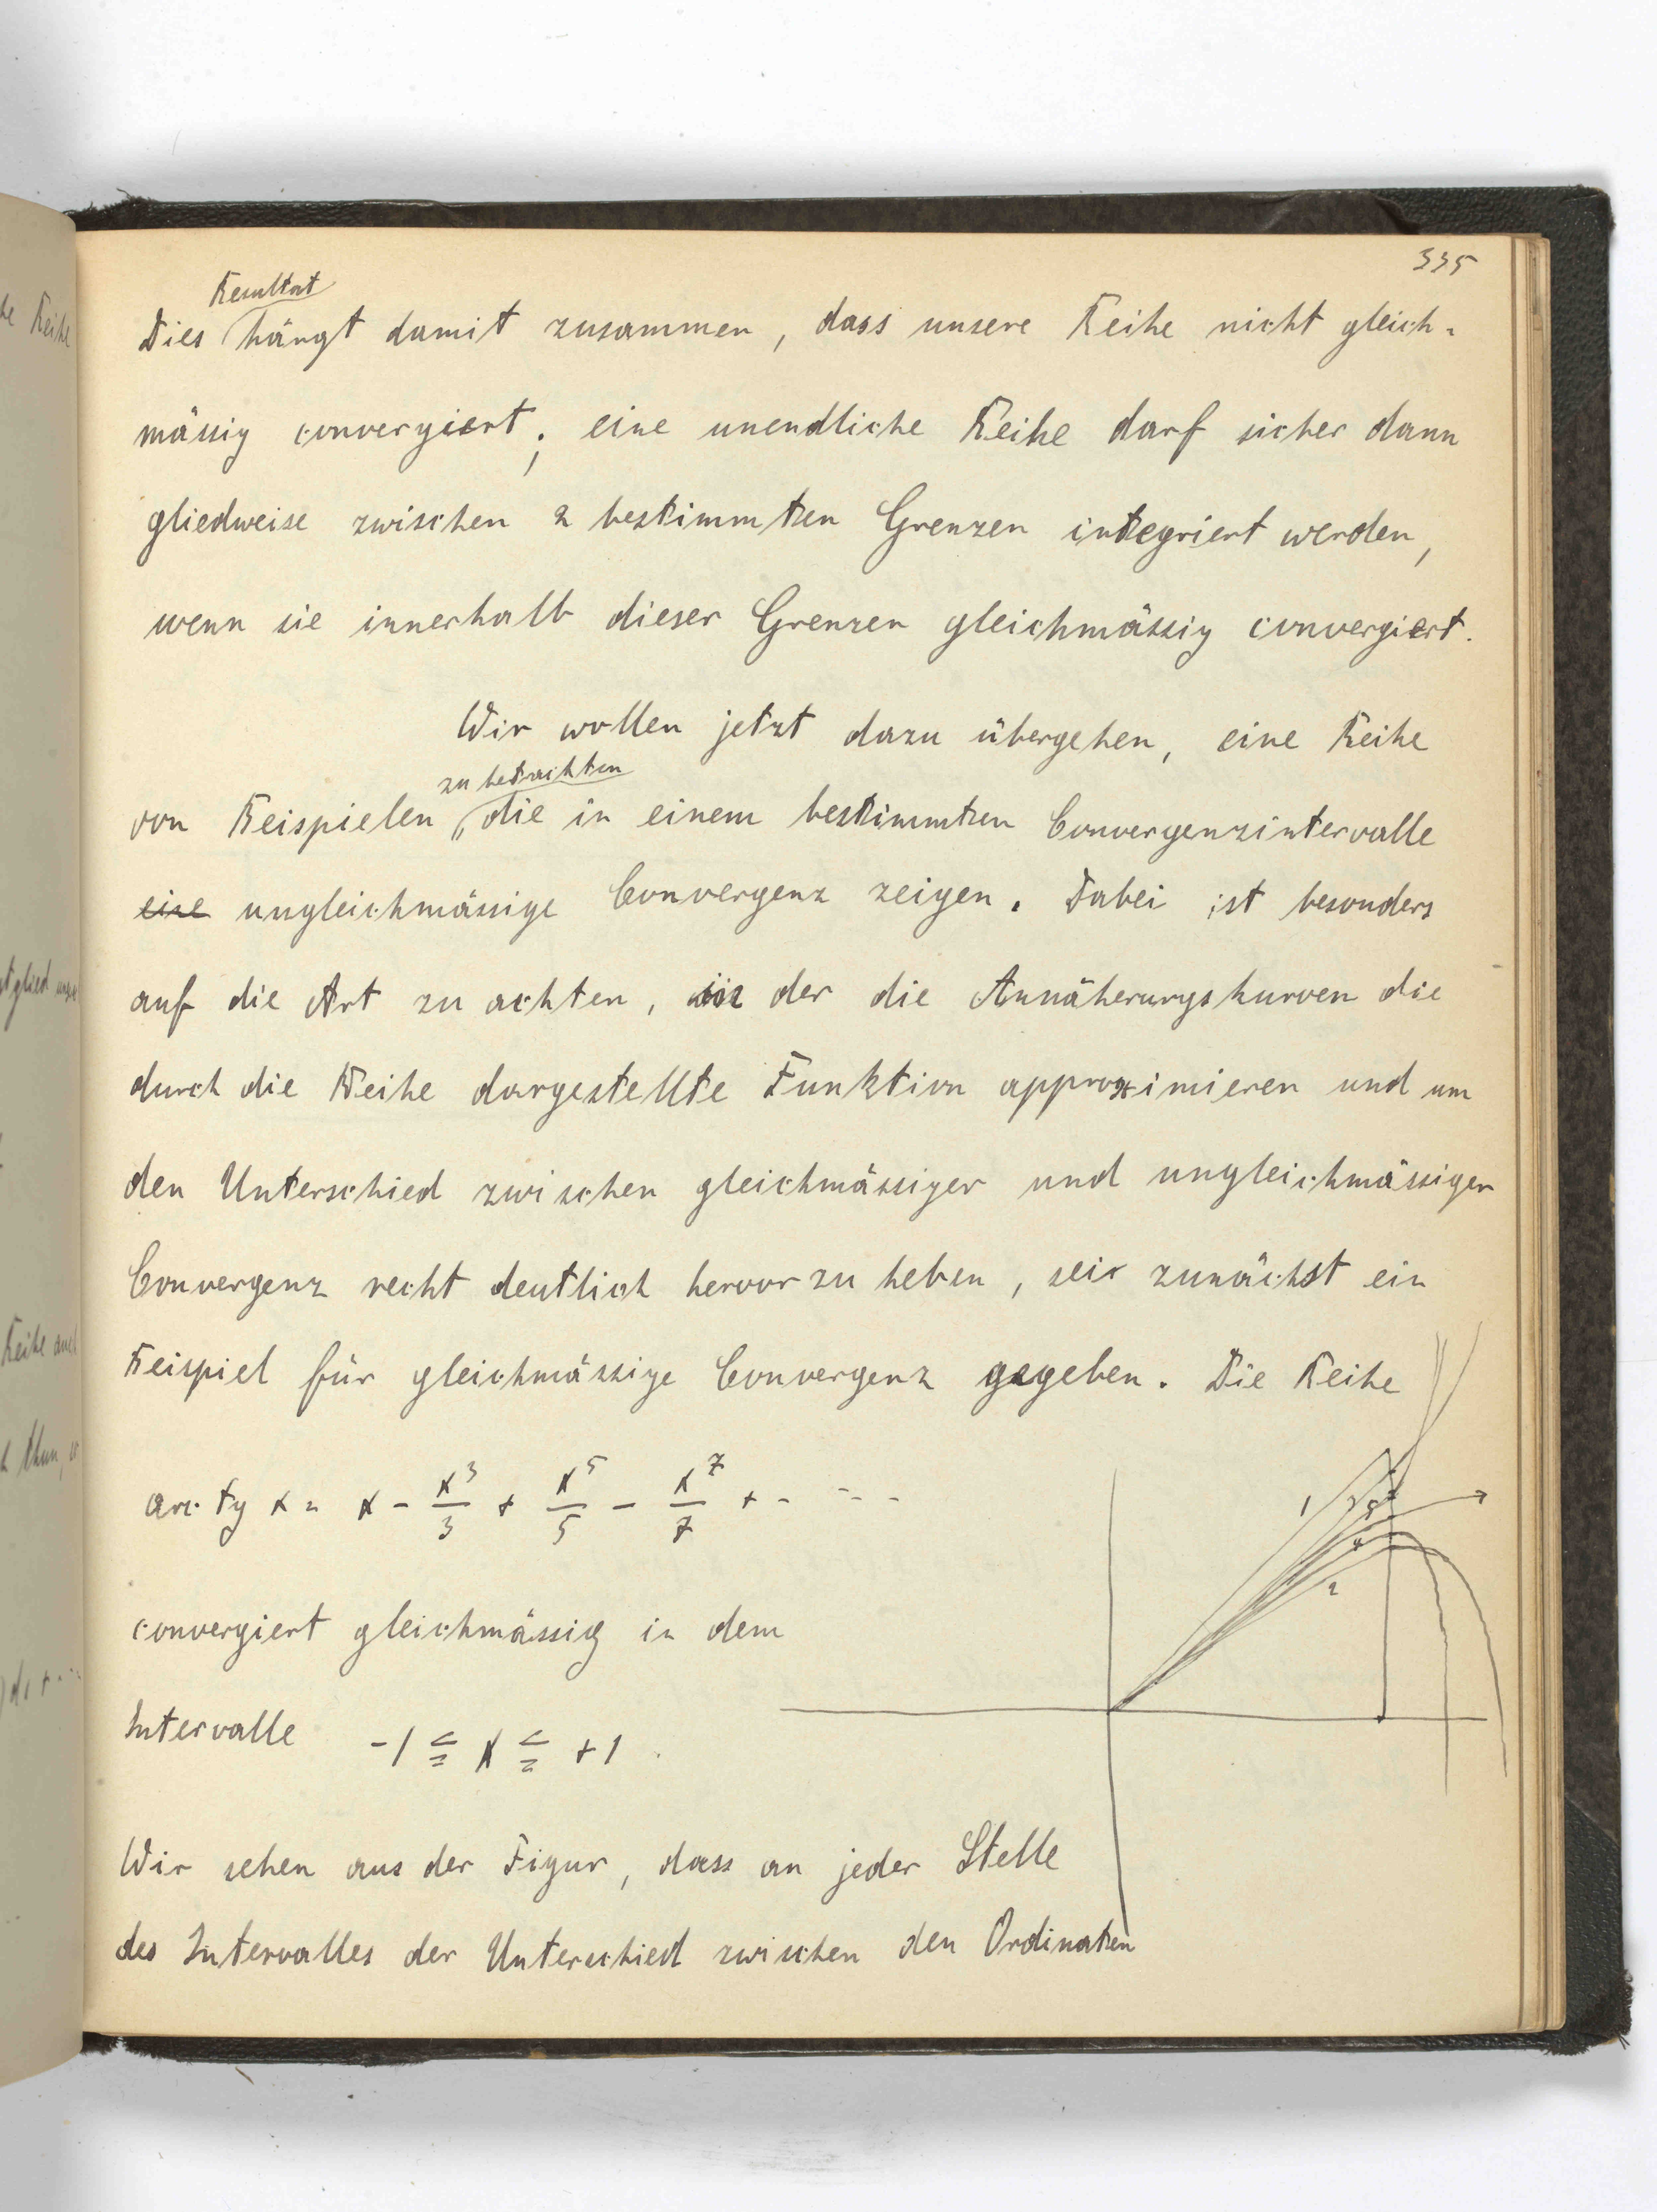 335
Resultat
Dies hängt damit zusammen, dass unsere Reihe nicht gleich=
mässig convergiert; eine unendliche Reihe darf sicher dann
gliedweise zwischen 2 bestimmten Grenzen integriert werden,
wenn sie innerhalb dieser Grenzen gleichmässig convergiert.
Wir wollen jetzt dazu übergehen, eine Reihe
zu betrachten
von Beispielen, die in einem bestimmten Convergenzintervalle
eine ungleichmässige Convergenz zeigen. Dabei ist besonders
auf die Art zu achten, in der die Annäherungskurven die
durch die Reihe dargestellte Funktion approximieren und um
den Unterschied zwischen gleichmässiger und ungleichmässiger
Convergenz recht deutlich hervorzuheben, sei zunächst ein
Beispiel für gleichmässige Convergenz gegeben. Die Reihe
arc tg x = x - x³/3 + x⁵/5 - x⁷/7 + - ...
1 3 5
4
2
convergiert gleichmässig in dem
Intervalle -1 ≦ x ≦ +1.
Wir sehen aus der Figur, dass an jeder Stelle
des Intervalles der Unterschied zwischen den Ordinaten